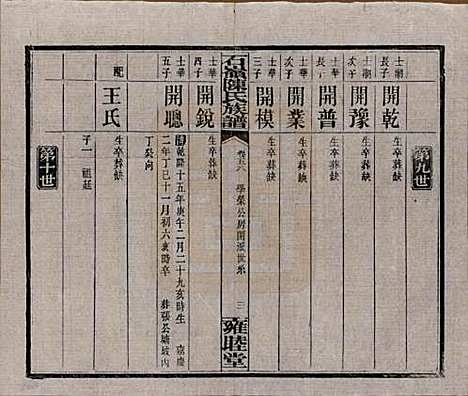 第九世
士瀚長子
開乾
生卒葬缺
士瀚次子
開豫
生卒葬缺
士華長子
開普
生卒葬缺
士華次子
開業
生卒葬缺
士華三子
開模
生卒葬缺
石嶺陳氏族譜
學榮公房開派世系
三
雍睦堂
士華四子
開銳
生卒葬缺
士華五子
開聰
清乾隆十五年庚午二月二十九亥時生
嘉慶二年丁巳十一月初六亥時卒
葬張公塘坡內丁癸向
配
王氏
生卒葬缺
子一
祖廷
第十世